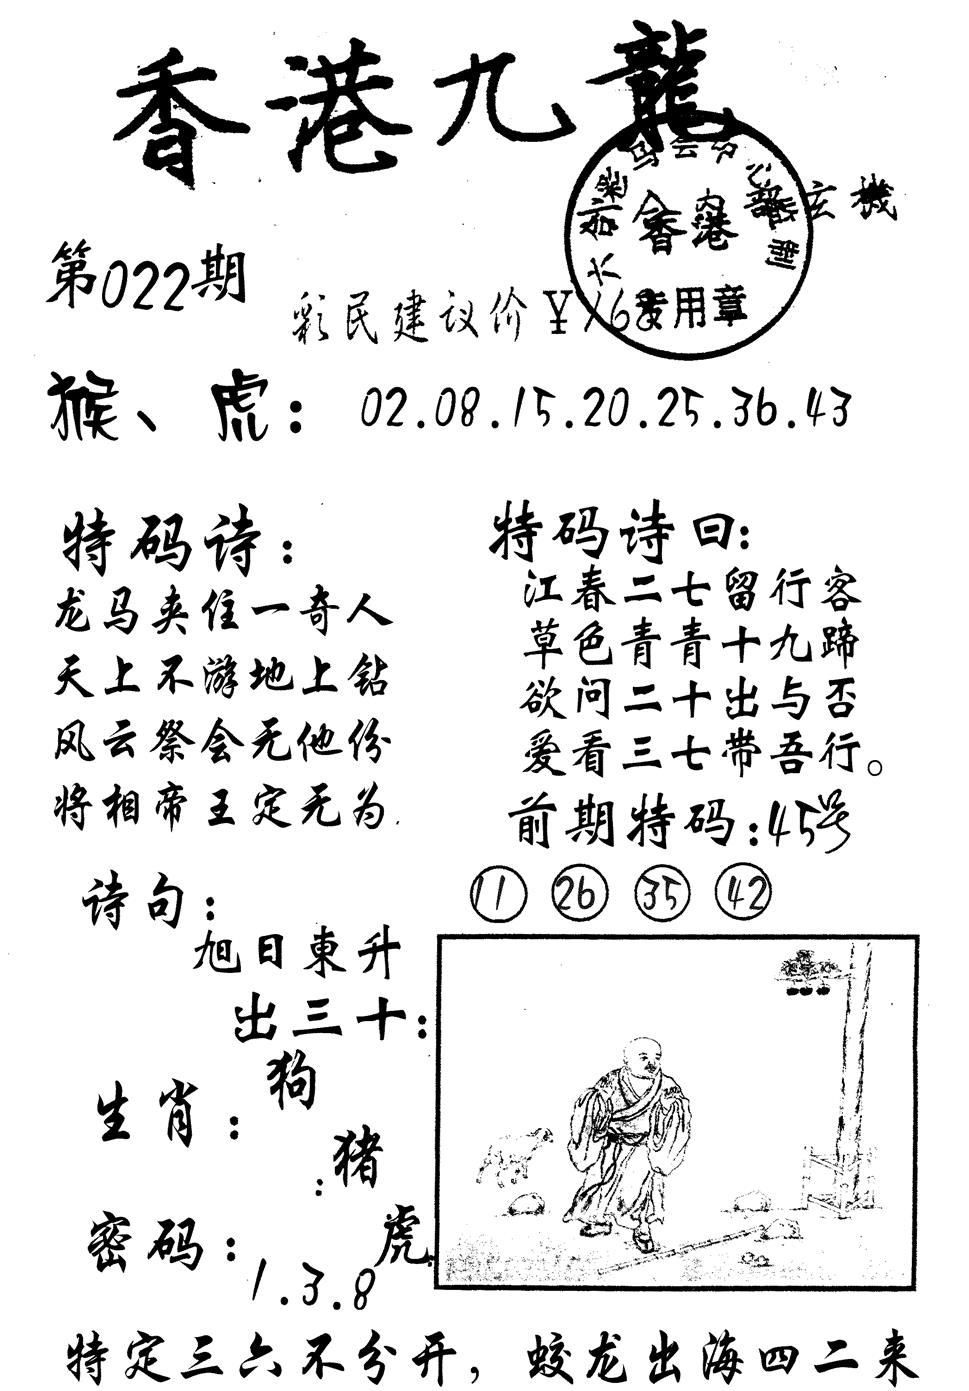 香港九龍
玄機
第022期
彩民建议价￥168
香港
专用章
猴、虎：02.08.15.20.25.36.43
特码诗：
龙马夹住一奇人
天上不游地上钻
风云祭会无他份
将相帝王定无为.
特码诗曰：
江春二七留行客
草色青青十九蹄
欲问二十出与否
爱看三七带吾行。
前期特码：45号
11 26 35 42
诗句：
旭日東升
出三十：
生肖：狗
：猪
虎.
密码：1.3.8
特定三六不分开，蛟龙出海四二来